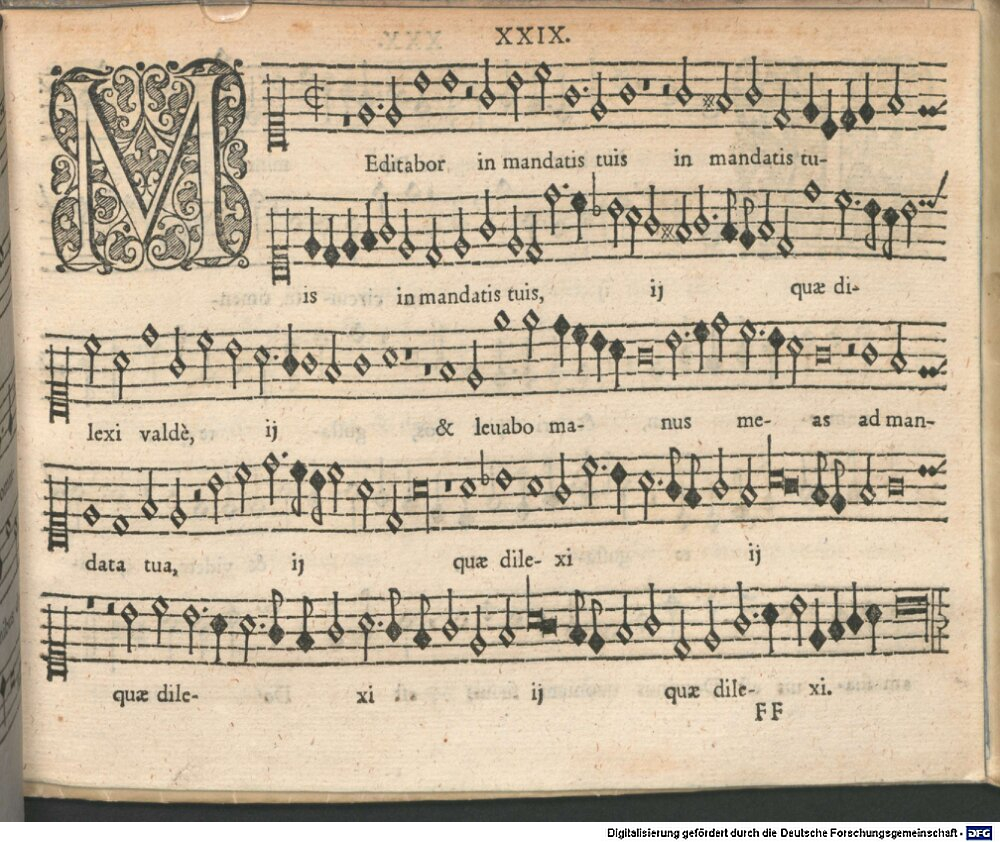 XXIX.
MEditabor in mandatis tuis in mandatis tu-
is in mandatis tuis, ij quæ di-
lexi valdè, ij & leuabo ma- nus me- as ad man-
data tua, ij quæ dile- xi ij
quæ dile- xi ij quæ dile- xi.
FF
Digitalisierung gefördert durch die Deutsche Forschungsgemeinschaft - DFG